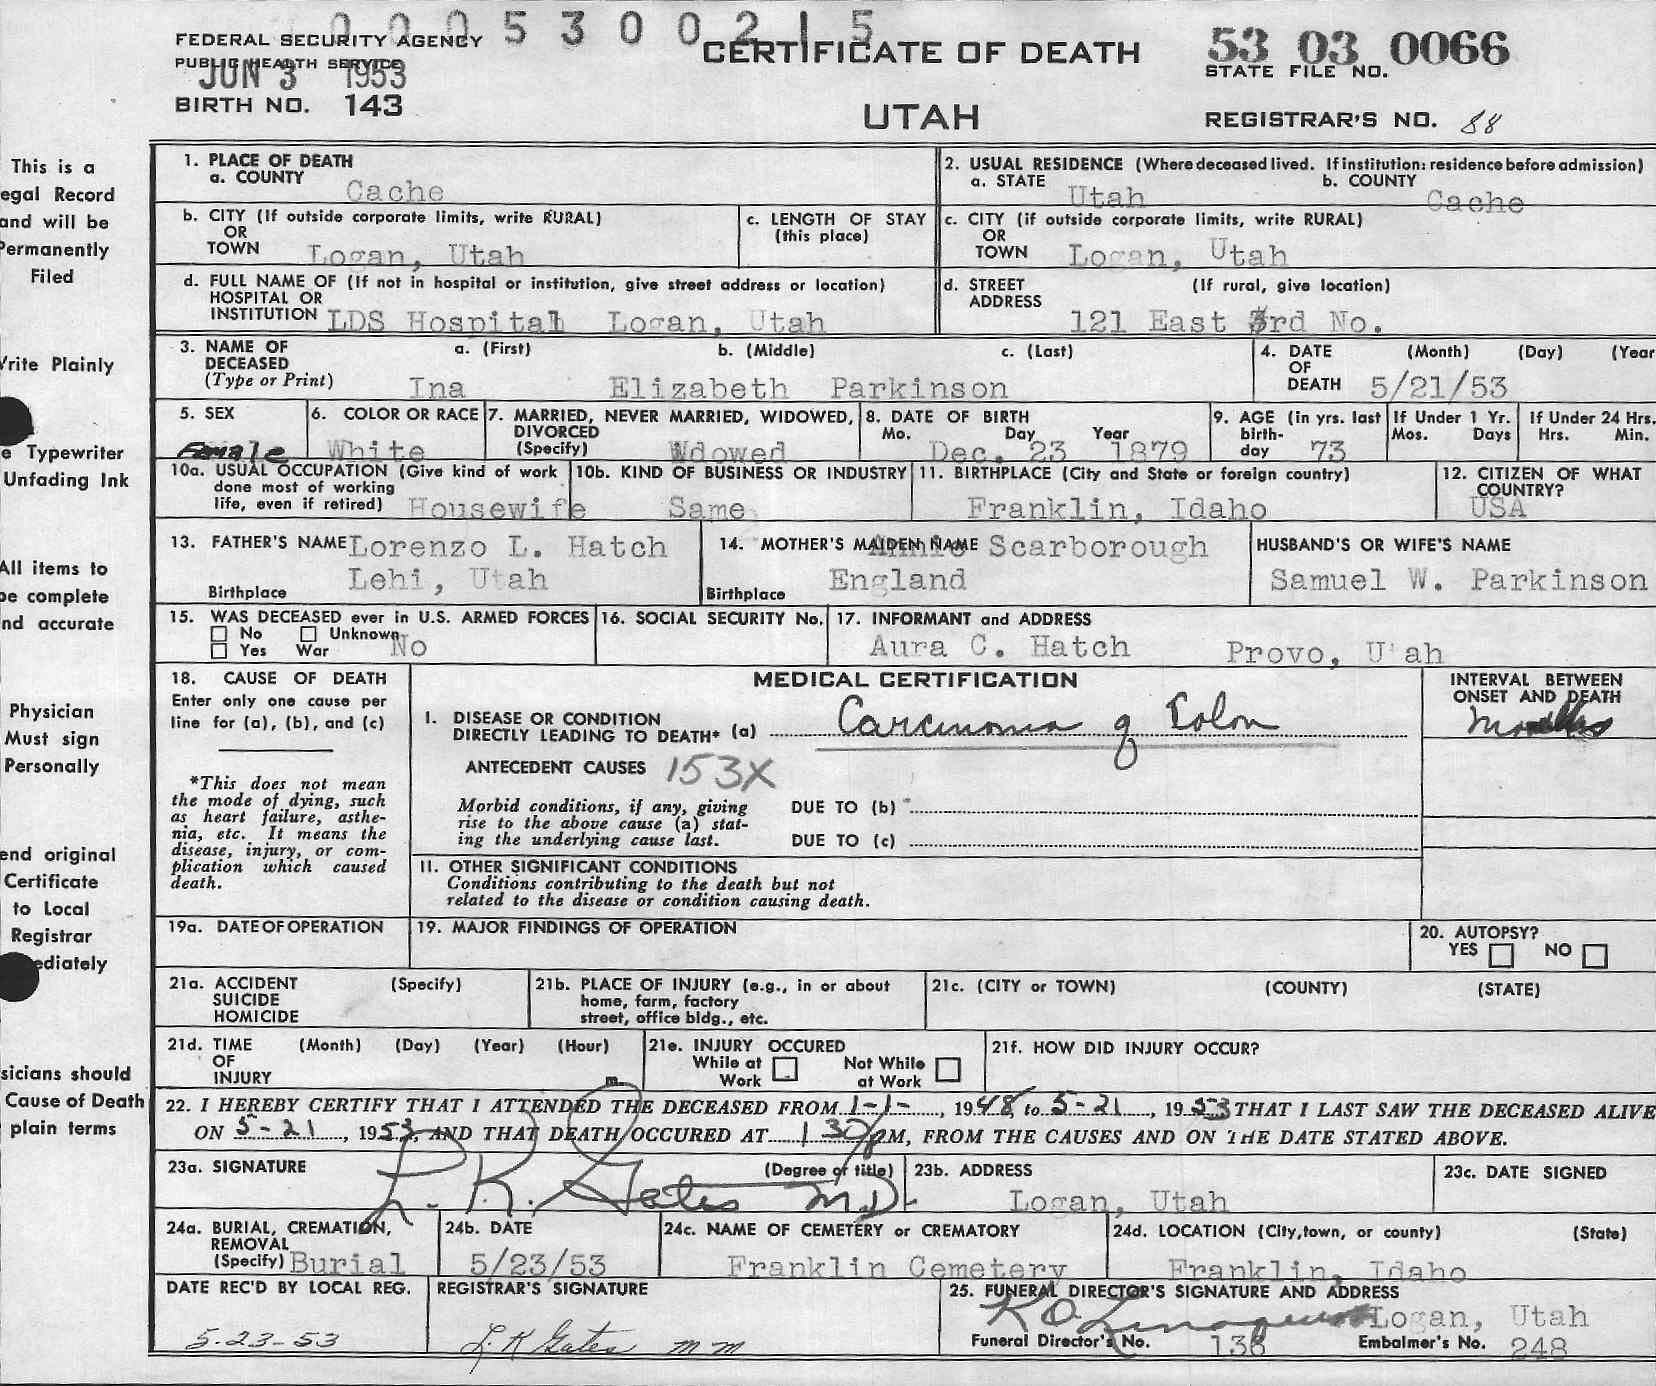 0 0 0 5 3 0 0 2 1 5
FEDERAL SECURITY AGENCY
PUBLIC HEALTH SERVICE
JUN 3 1953
BIRTH NO. 143
CERTIFICATE OF DEATH
UTAH
53 03 0066
STATE FILE NO.
REGISTRAR'S NO. 88
This is a
egal Record
and will be
Permanently
Filed
Write Plainly
e Typewriter
Unfading Ink
All items to
be complete
nd accurate
Physician
Must sign
Personally
end original
Certificate
to Local
Registrar
mediately
sicians should
Cause of Death
plain terms
1. PLACE OF DEATH
a. COUNTY Cache
2. USUAL RESIDENCE (Where deceased lived. If institution: residence before admission)
a. STATE Utah b. COUNTY Cache
b. CITY (If outside corporate limits, write RURAL)
OR
TOWN Logan, Utah
c. LENGTH OF STAY
(this place)
c. CITY (if outside corporate limits, write RURAL)
OR
TOWN Logan, Utah
d. FULL NAME OF (If not in hospital or institution, give street address or location)
HOSPITAL OR
INSTITUTION LDS Hospital Logan, Utah
d. STREET (If rural, give location)
ADDRESS
121 East 3rd No.
3. NAME OF a. (First) b. (Middle) c. (Last)
DECEASED
(Type or Print) Ina Elizabeth Parkinson
4. DATE (Month) (Day) (Year
OF
DEATH 5/21/53
5. SEX
Female
6. COLOR OR RACE
White
7. MARRIED, NEVER MARRIED, WIDOWED,
DIVORCED
(Specify) Wdowed
8. DATE OF BIRTH
Mo. Day Year
Dec. 23 1879
9. AGE (in yrs. last
birth-
day 73
If Under 1 Yr.
Mos. Days
If Under 24 Hrs.
Hrs. Min.
10a. USUAL OCCUPATION (Give kind of work
done most of working
life, even if retired) Housewife
10b. KIND OF BUSINESS OR INDUSTRY
Same
11. BIRTHPLACE (City and State or foreign country)
Franklin, Idaho
12. CITIZEN OF WHAT
COUNTRY?
USA
13. FATHER'S NAME Lorenzo L. Hatch
Birthplace Lehi, Utah
14. MOTHER'S MAIDEN NAME Annie Scarborough
Birthplace England
HUSBAND'S OR WIFE'S NAME
Samuel W. Parkinson
15. WAS DECEASED ever in U.S. ARMED FORCES
No Unknown
Yes War No
16. SOCIAL SECURITY No.
17. INFORMANT and ADDRESS
Aura C. Hatch Provo, U ah
18. CAUSE OF DEATH
Enter only one cause per
line for (a), (b), and (c)
*This does not mean
the mode of dying, such
as heart failure, asthe-
nia, etc. It means the
disease, injury, or com-
plication which caused
death.
MEDICAL CERTIFICATION
I. DISEASE OR CONDITION
DIRECTLY LEADING TO DEATH* (a) Carcinoma of Colon
ANTECEDENT CAUSES 153X
Morbid conditions, if any, giving
rise to the above cause (a) stat-
ing the underlying cause last.
DUE TO (b)
DUE TO (c)
II. OTHER SIGNIFICANT CONDITIONS
Conditions contributing to the death but not
related to the disease or condition causing death.
INTERVAL BETWEEN
ONSET AND DEATH
Months
19a. DATE OF OPERATION
19. MAJOR FINDINGS OF OPERATION
20. AUTOPSY?
YES NO
21a. ACCIDENT (Specify)
SUICIDE
HOMICIDE
21b. PLACE OF INJURY (e.g., in or about
home, farm, factory
street, office bldg., etc.
21c. (CITY or TOWN) (COUNTY) (STATE)
21d. TIME (Month) (Day) (Year) (Hour)
OF
INJURY m.
21e. INJURY OCCURED
While at Not While
Work at Work
21f. HOW DID INJURY OCCUR?
22. I HEREBY CERTIFY THAT I ATTENDED THE DECEASED FROM 1-1-, 1948, to 5-21, 1953 THAT I LAST SAW THE DECEASED ALIVE
ON 5-21, 1953, AND THAT DEATH OCCURED AT 1 30 PM, FROM THE CAUSES AND ON THE DATE STATED ABOVE.
23a. SIGNATURE (Degree of title)
L. K. Gates M.D.
23b. ADDRESS
Logan, Utah
23c. DATE SIGNED
24a. BURIAL, CREMATION,
REMOVAL
(Specify) Burial
24b. DATE
5/23/53
24c. NAME OF CEMETERY or CREMATORY
Franklin Cemetery
24d. LOCATION (City, town, or county) (State)
Franklin, Idaho
DATE REC'D BY LOCAL REG.
5-23-53
REGISTRAR'S SIGNATURE
L. K Gates mm
25. FUNERAL DIRECTOR'S SIGNATURE AND ADDRESS
Logan, Utah
Funeral Director's No. 136 Embalmer's No. 248